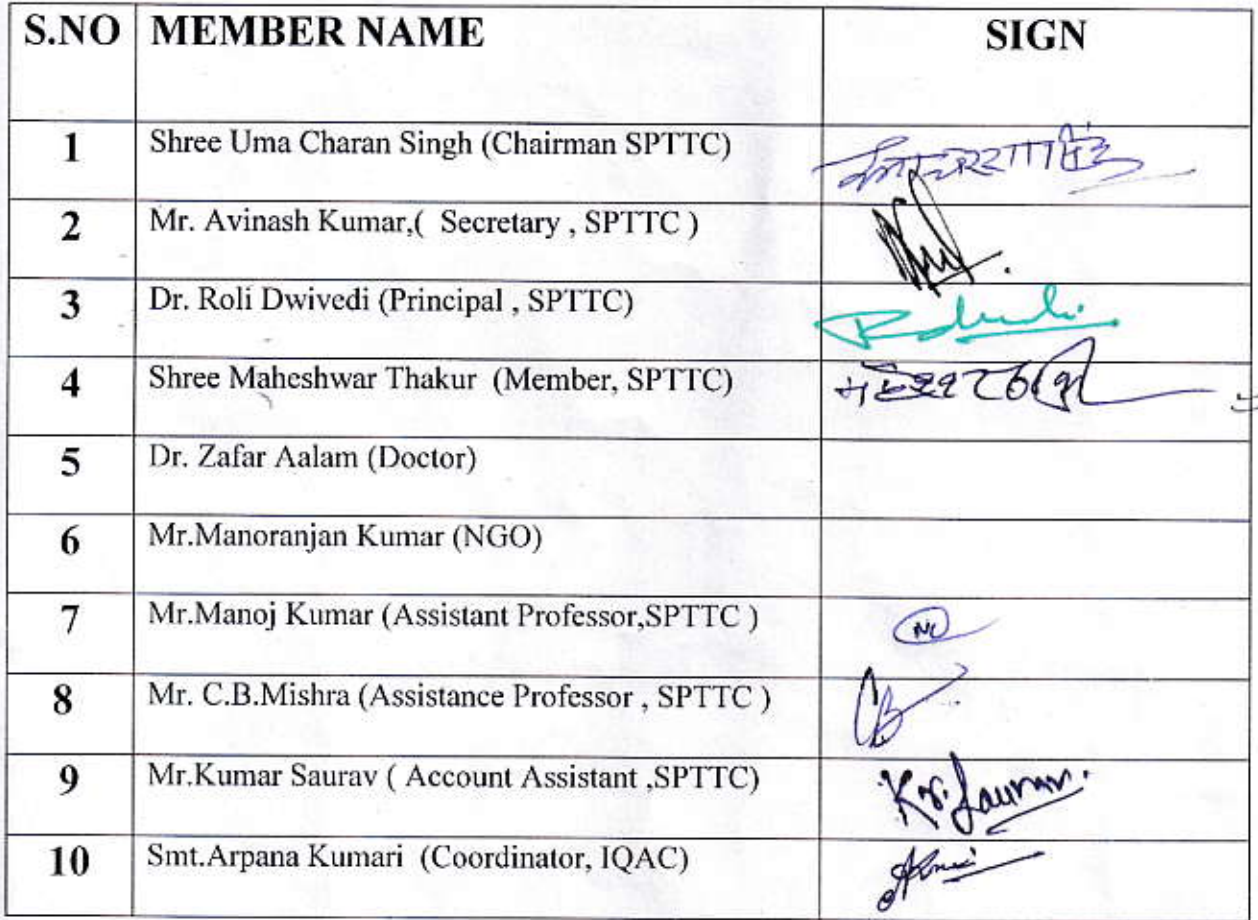 S.NO MEMBER NAME SIGN
1 Shree Uma Charan Singh (Chairman SPTTC)
2 Mr. Avinash Kumar,( Secretary , SPTTC )
3 Dr. Roli Dwivedi (Principal , SPTTC)
4 Shree Maheshwar Thakur (Member, SPTTC)
5 Dr. Zafar Aalam (Doctor)
6 Mr.Manoranjan Kumar (NGO)
7 Mr.Manoj Kumar (Assistant Professor,SPTTC )
8 Mr. C.B.Mishra (Assistance Professor , SPTTC ) CB
9 Mr.Kumar Saurav ( Account Assistant ,SPTTC)
10 Smt.Arpana Kumari (Coordinator, IQAC)